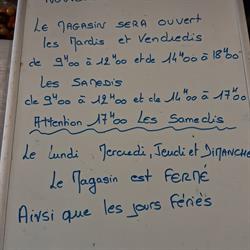 Le Magasin sera ouvert
les Mardis et Vendredis
de 9H00 à 12H00 et de 14H00 à 18H00
Les Samedis
de 9H00 à 12H00 et de 14H00 à 17H00
Attention 17H00 Les Samedis
Le Lundi Mercredi, Jeudi et Dimanche
Le Magasin est Fermé
Ainsi que les jours fériés